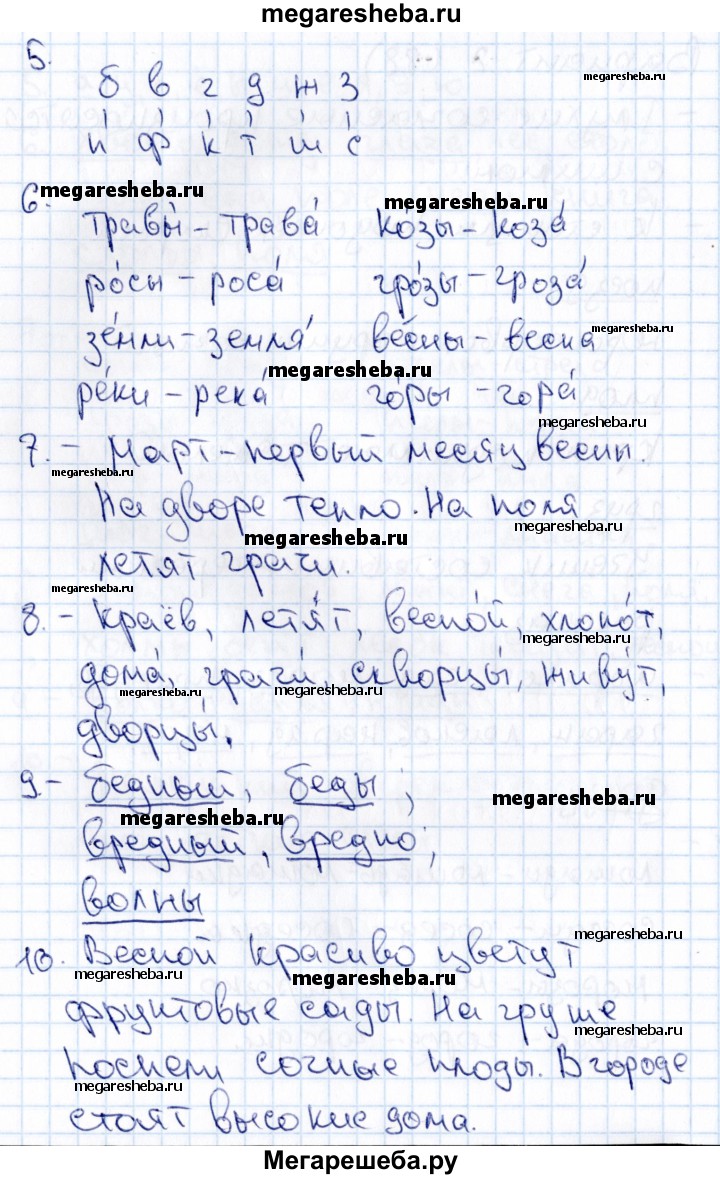 megaresheba.ru
5.
б в г д ж з
megaresheba.ru
п ф к т ш с
6. megaresheba.ru
megaresheba.ru
травы́ – трава́ ко́зы – коза́
ро́сы – роса́ гро́зы – гроза́
зе́мли – земля́ вёсны – весна
megaresheba.ru
megaresheba.ru
ре́ки – река́ го́ры – гора́
megaresheba.ru
7. – Март – первый месяц весны.
megaresheba.ru
На дворе тепло. На поля
megaresheba.ru
megaresheba.ru
летят грачи.
megaresheba.ru
8. – Краёв, летя́т, весно́й, хлопо́т,
megaresheba.ru
дома́, грачи́, скворцы́, живу́т,
megaresheba.ru megaresheba.ru
дворцы́.
9. – бедный, беды;
megaresheba.ru
megaresheba.ru
вредный, вредно;
волны
10. Весной красиво цветут
megaresheba.ru
megaresheba.ru
megaresheba.ru
фруктовые сады. На груше
megaresheba.ru
поспели сочные плоды. В городе
megaresheba.ru
megaresheba.ru
стоят высокие дома.
Мегарешеба.ру